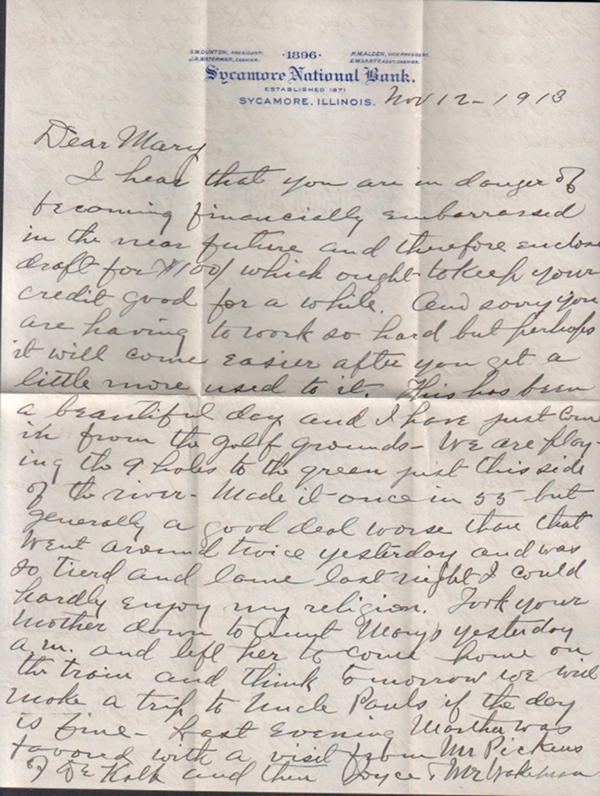 S.M. DUNTON, PRESIDENT. ·1896· P.M. ALDEN, VICE PRESIDENT.
J.R. WATERMAN, CASHIER. ASST. CASHIER.
Sycamore National Bank.
ESTABLISHED 1871
SYCAMORE, ILLINOIS. Nov 12 - 1913
Dear Mary
I hear that you are in danger of
becoming financially embarrassed
in the near future and therefore enclose
draft for $100/ which ought to keep your
credit good for a while. Am sorry you
are having to work so hard but perhaps
it will come easier after you get a
little more used to it. This has been
a beautiful day and I have just come
in from the golf grounds - We are play-
ing the 9 holes to the green just this side
of the river - Made it once in 55 but
generally a good deal worse than that
Went around twice yesterday and was
so tierd and lame last night I could
hardly enjoy my religion. Took your
Mother down to Aunt Mary's yesterday
a.m. and left her to come home on
the train and think tomorrow we will
make a trip to Uncle Pauls if the day
is fine - Last Evening Martha was
favored with a visit from Mr Pickens
of De Kalb and then Joyce & Mr Wakeman